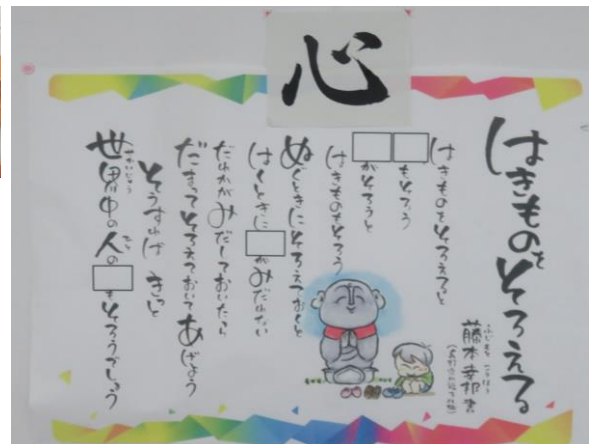 心
はきものをそろえる
藤本幸邦
はきものをそろえると
□もそろう
□がそろうと
はきものもそろう
ぬぐときにそろえておくと
はくときに□がみだれない
だれかがみだしておいたら
だまってそろえておいてあげよう
そうすればきっと
世界中の人の□もそろうでしょう